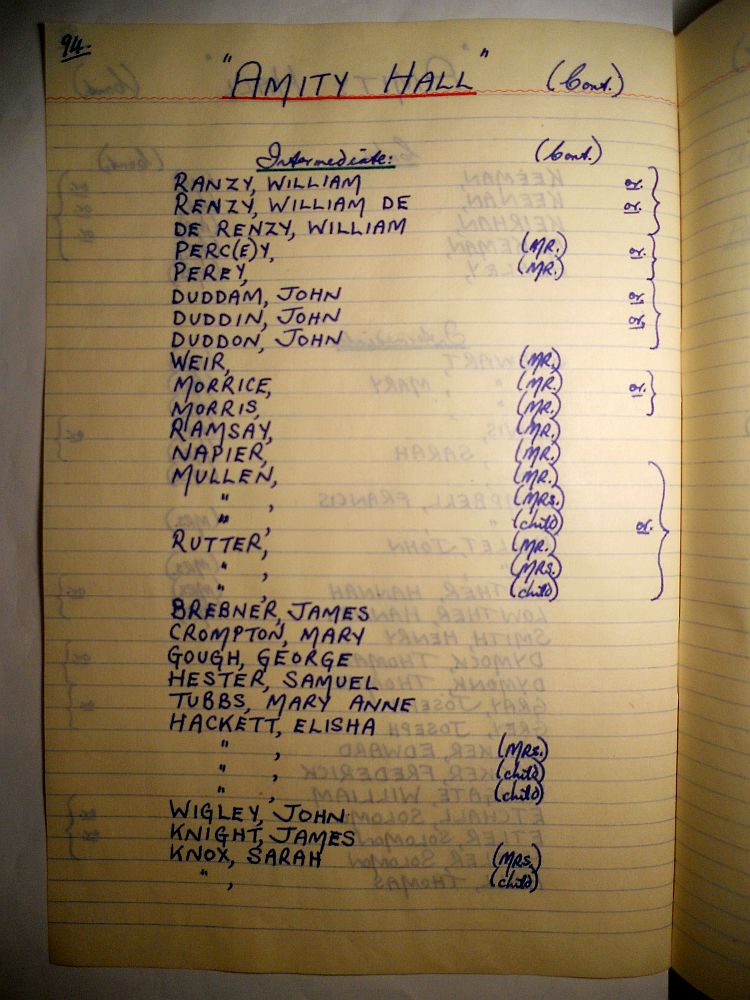 94.
"AMITY HALL" (Cont.)
Intermediate: (Cont.)
RANZY, WILLIAM or.
RENZY, WILLIAM DE or.
DE RENZY, WILLIAM
PERC(E)Y, (MR.) or.
PEREY, (MR.)
DUDDAM, JOHN or.
DUDDIN, JOHN or.
DUDDON, JOHN
WEIR, (MR.)
MORRICE, (MR.) or.
MORRIS, (MR.)
RAMSAY, (MR.)
NAPIER, (MR.)
MULLEN, (MR.)
" , (MRS.)
" , (child) or.
RUTTER, (MR.)
" , (MRS.)
" , (child)
BREBNER, JAMES
CROMPTON, MARY
GOUGH, GEORGE
HESTER, SAMUEL
TUBBS, MARY ANNE
HACKETT, ELISHA
" , (MRS.)
" , (child)
" , (child)
WIGLEY, JOHN
KNIGHT, JAMES
KNOX, SARAH (MRS.)
" , (child)